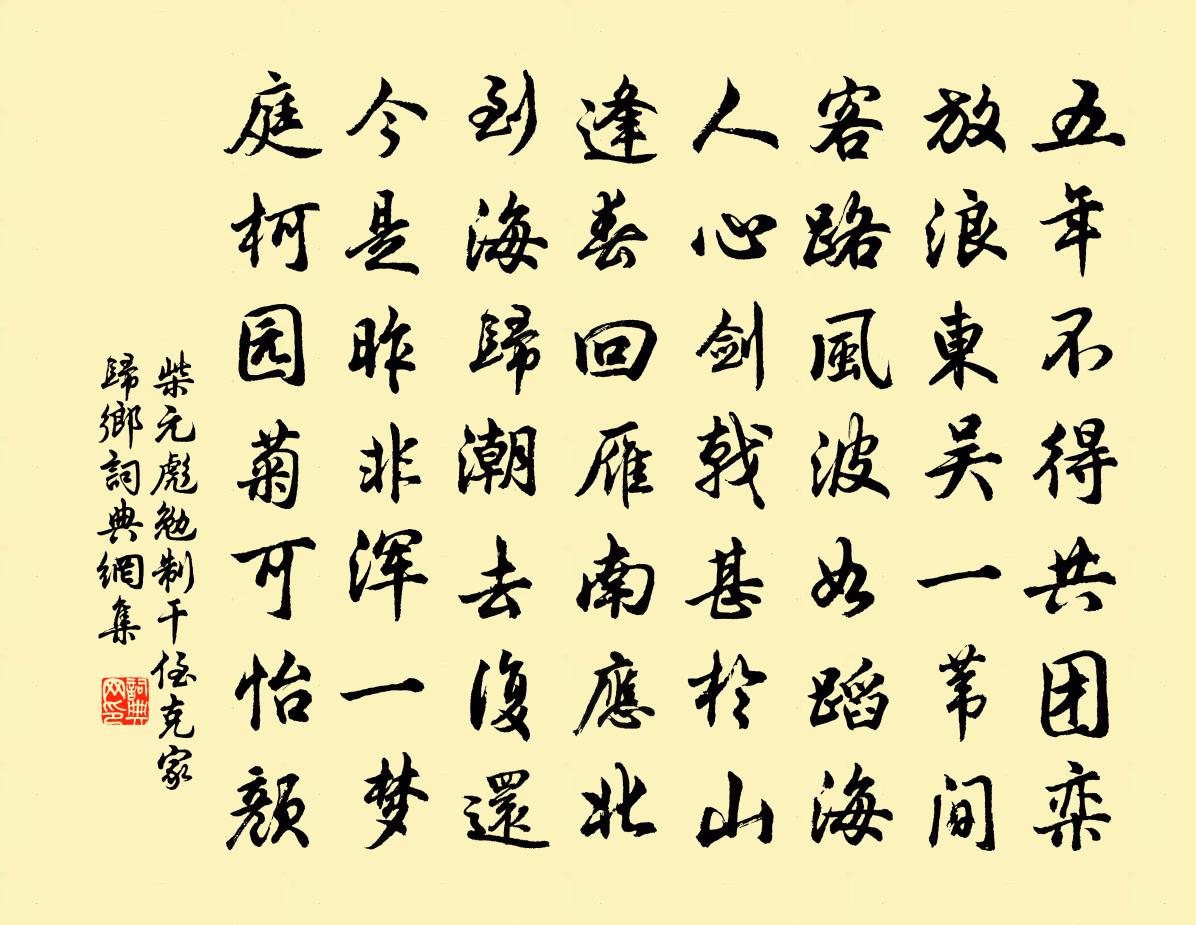 五年不得共团栾
放浪東吴一苇间
客路風波如蹈海
人心剑戟甚於山
逢春回雁南應北
到海歸潮去復還
今是昨非浑一梦
庭柯园菊可怡颜
柴元彪勉制干侄克家
歸鄉詞典網集
詞典网印